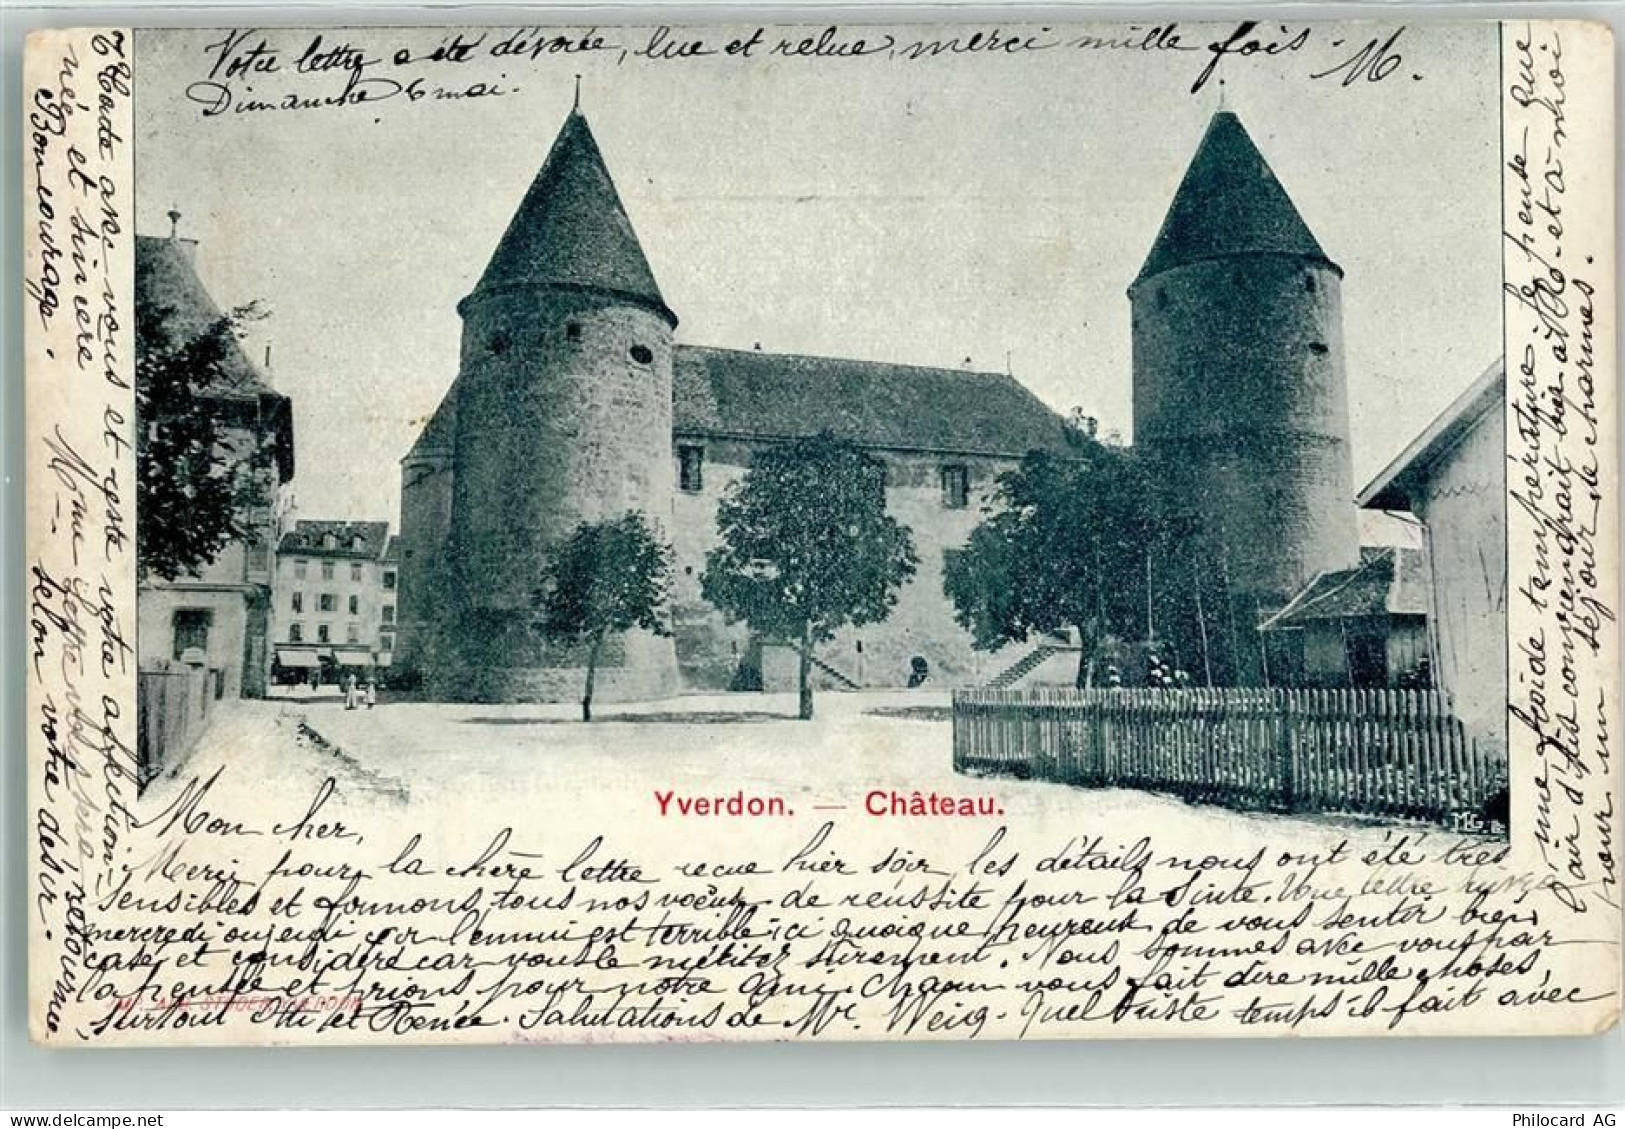 Votre lettre a été dévorée, lue et relue, merci mille fois. M.
Dimanche 6 mai.
Yverdon. — Château.
MG.
Mon cher,
Merci pour la chère lettre recue hier soir, les détails nous ont été très
sensibles et formons tous nos voeux de réussite pour la suite. Une lettre
mercredi ou jeudi car l'ennui est terrible ici quoique heureux de vous sentir bien
case et considéré car vous le méritez sûrement. Nous sommes avec vous par
la pensée et prions pour notre ami. Chacun vous fait dire mille choses,
surtout et Renée. Salutations de Mr. Weiq. Quel triste temps il fait avec
une froide température, je pense que
l'air d'ici conviendrait bien à et à moi
pour un séjour de charmes.
Toute avec vous et reste votre affection-
née et sincère
Bon courage. Mme
selon votre désir.
Philocard AG